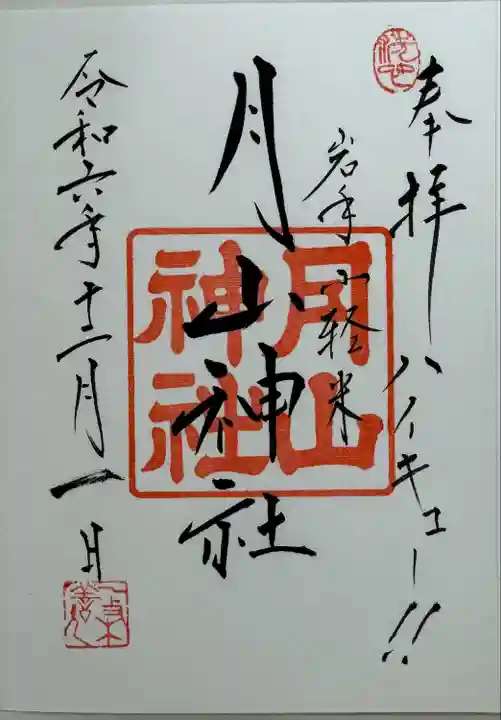 奉拝 ハイキュー!!
岩手 小軽米
月山神社
月山
神社
令和六年十二月一日